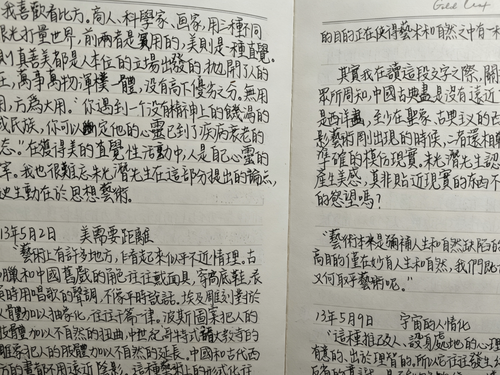 我喜歡有比方。商人、科學家、畫家,用三種不同
眼光打量世界,前兩者是實用的,美則是一種直覺。
真善美都是人本位的立場出發的 拋開了人的
在,萬事萬物渾樸一體,沒有高下優劣之分。無用
用,方為大用。"你遇到一个没有精神上的饑渴的
或民族,你可以斷定他的心靈已到了疾病衰老的
态。"在獲得美的直覺性活動中,人是自己心靈的
宰。我也很難忘朱光潛先生在這部分提出的論点,
地生動在於思想藝術。
13年5月2日 美需要距離
"藝術上有許多地方,乍看起来似乎不近情理。古
臘和中國舊戲的角色往往戴面具,穿高底鞋,表
時用唱歌的聲調,不像平時說話。埃及雕刻對於
人體加以抽象化,往往千篇一律。波斯圖案把人的
肢體加以不自然的扭曲,中世紀哥特式諸大教寺的
雕象把人的肢體加以不自然的延長。中國和古代西
方的畫都不用遠近陰影。這種藝術上的形式化往
Gold Leaf
的目的正在使得藝术和自然之中有
其實我在讀這段文字之際,關
眾所周知,中國古典畫是沒有遠近
是西洋畫,到少在聖象、古典议的
影藝術剛出現的時候,二者還相
準確的模仿現實。朱光潛先生認
產生美感,莫非貼近現實的東西不
的慾望嗎?
"藝術本来是彌補人生和自然缺陷的
高目的僅在妙肖人生和自然,我們既
又何取乎藝術呢。"
13年5月9日 宇宙的人情化
"這種推己及人、設身處地的心理
有意的,出於理智的,所以它往往發生